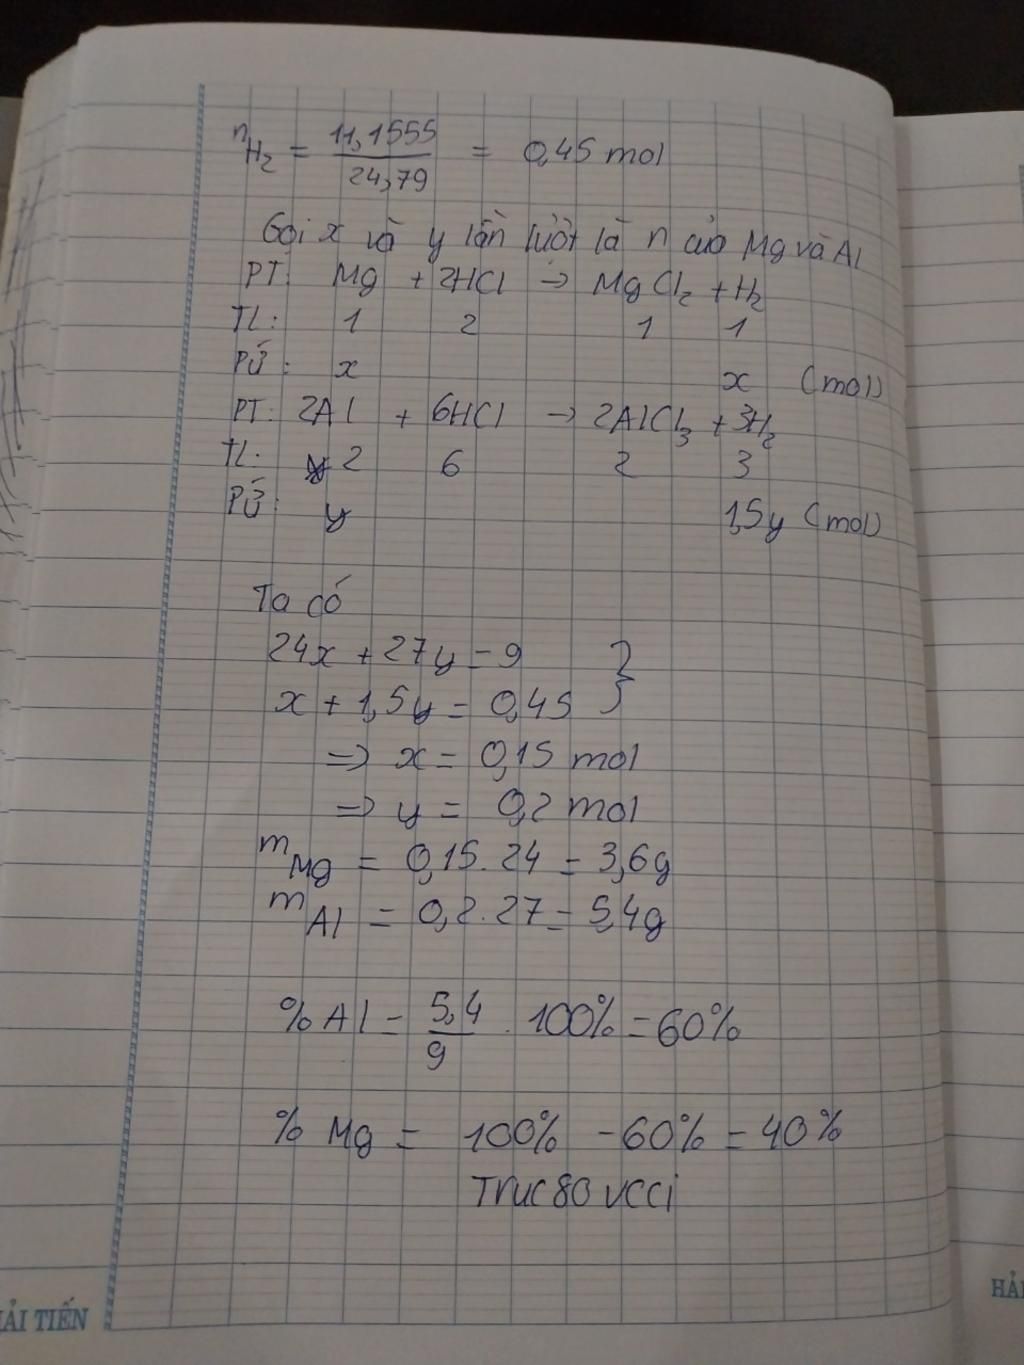 nH2 = 11,1555/24,79 = 0,45 mol
Gọi x và y lần lượt là n của Mg và Al
PT: Mg + 2HCl → MgCl2 + H2
TL: 1 2 1 1
PỨ: x x (mol)
PT: 2Al + 6HCl → 2AlCl3 + 3H2
TL: 2 6 2 3
PỨ: y 1,5y (mol)
Ta có
24x + 27y = 9 }
x + 1,5y = 0,45
=> x = 0,15 mol
=> y = 0,2 mol
mMg = 0,15.24 = 3,6g
mAl = 0,2.27 = 5,4g
%Al = 5,4/9 . 100% = 60%
% Mg = 100% - 60% = 40%
Truc80 vcci
ẢI TIẾN
HẢI